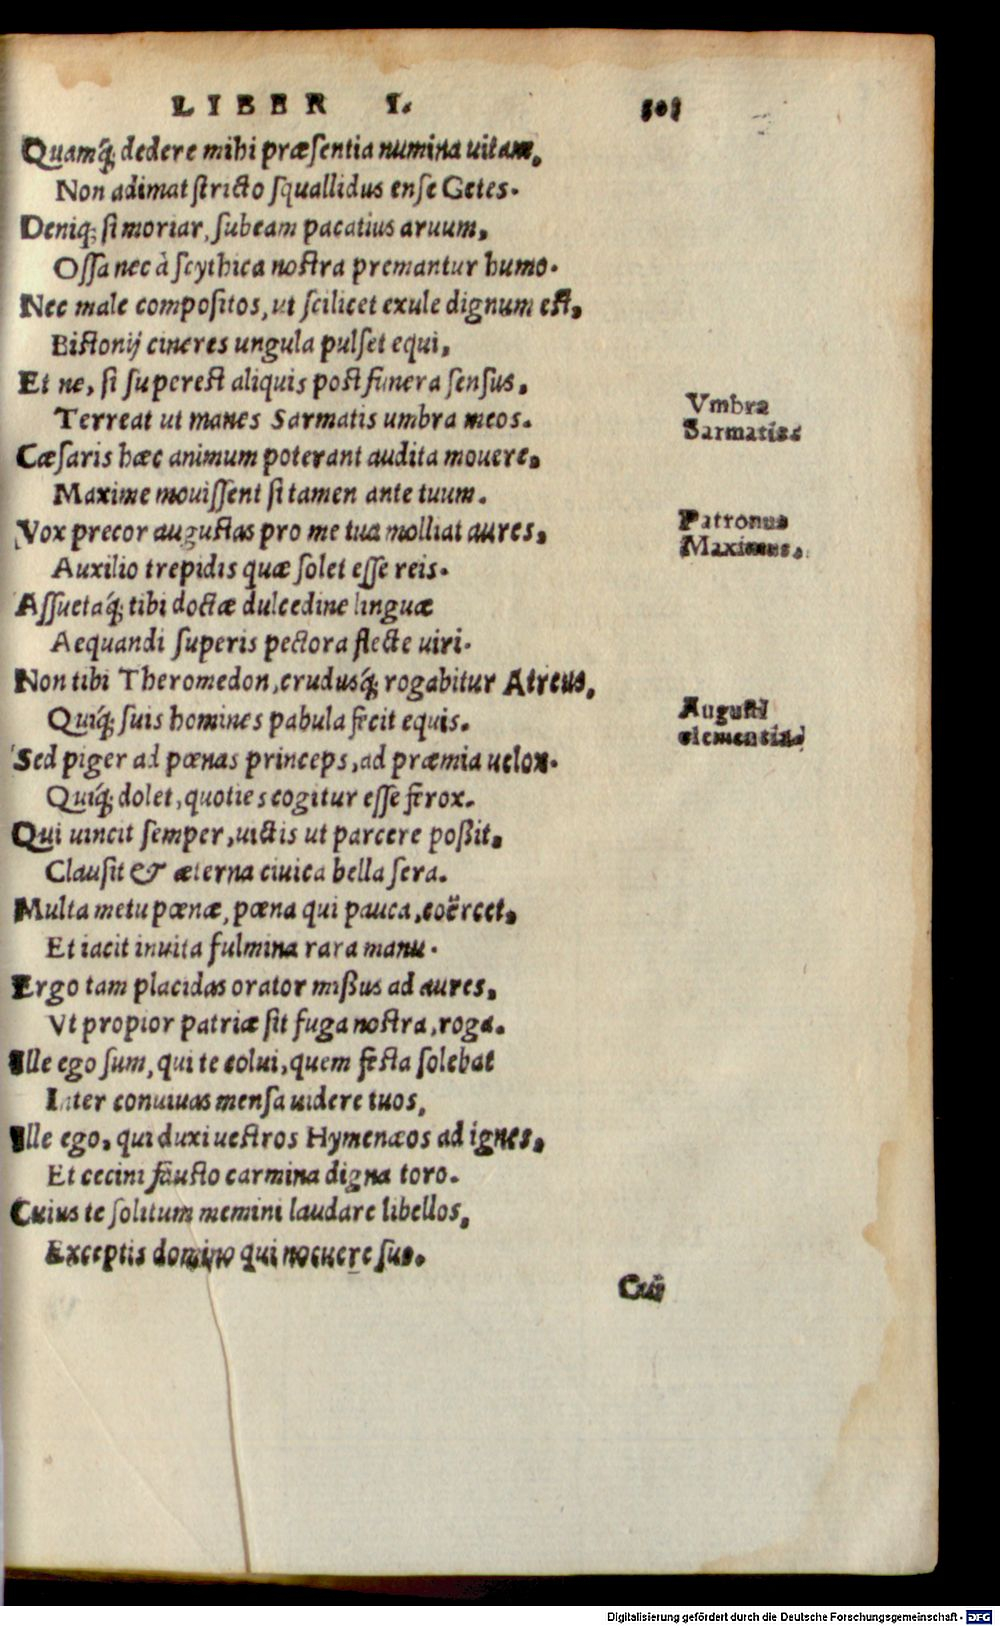 LIBER I. 301
Quamq́; dedere mihi præsentia numina uitam,
Non adimat stricto squallidus ense Getes.
Deniq; si moriar, subeam pacatius aruum,
Ossa nec à scythica nostra premantur humo.
Nec male compositos, ut scilicet exule dignum est,
Bistonij cineres ungula pulset equi,
Et ne, si superest aliquis post funera sensus,
Terreat ut manes Sarmatis umbra meos.
Vmbra
Sarmatis
Cæsaris hæc animum poterant audita mouere,
Maxime mouissent si tamen ante tuum.
Vox precor augustas pro me tua molliat aures,
Patronus
Maximus.
Auxilio trepidis quæ solet esse reis.
Assuetaq́; tibi doctæ dulcedine linguæ
Aequandi superis pectora flecte uiri.
Non tibi Theromedon, crudusq́; rogabitur Atreus,
Quiq́; suis homines pabula fecit equis.
Augusti
clementia
Sed piger ad pœnas princeps, ad præmia uelox.
Quiq́; dolet, quoties cogitur esse ferox.
Qui uincit semper, uictis ut parcere poßit,
Clausit & æterna ciuica bella sera.
Multa metu pœnæ, pœna qui pauca, coërcet,
Et iacit inuita fulmina rara manu.
Ergo tam placidas orator mißus ad aures,
Vt propior patriæ sit fuga nostra, roga.
Ille ego sum, qui te colui, quem festa solebat
Inter conuiuas mensa uidere tuos,
Ille ego, qui duxi uestros Hymenæos ad ignes,
Et cecini fausto carmina digna toro.
Cuius te solitum memini laudare libellos,
Exceptis domino qui nocuere suo.
Cui
Digitalisierung gefördert durch die Deutsche Forschungsgemeinschaft - DFG